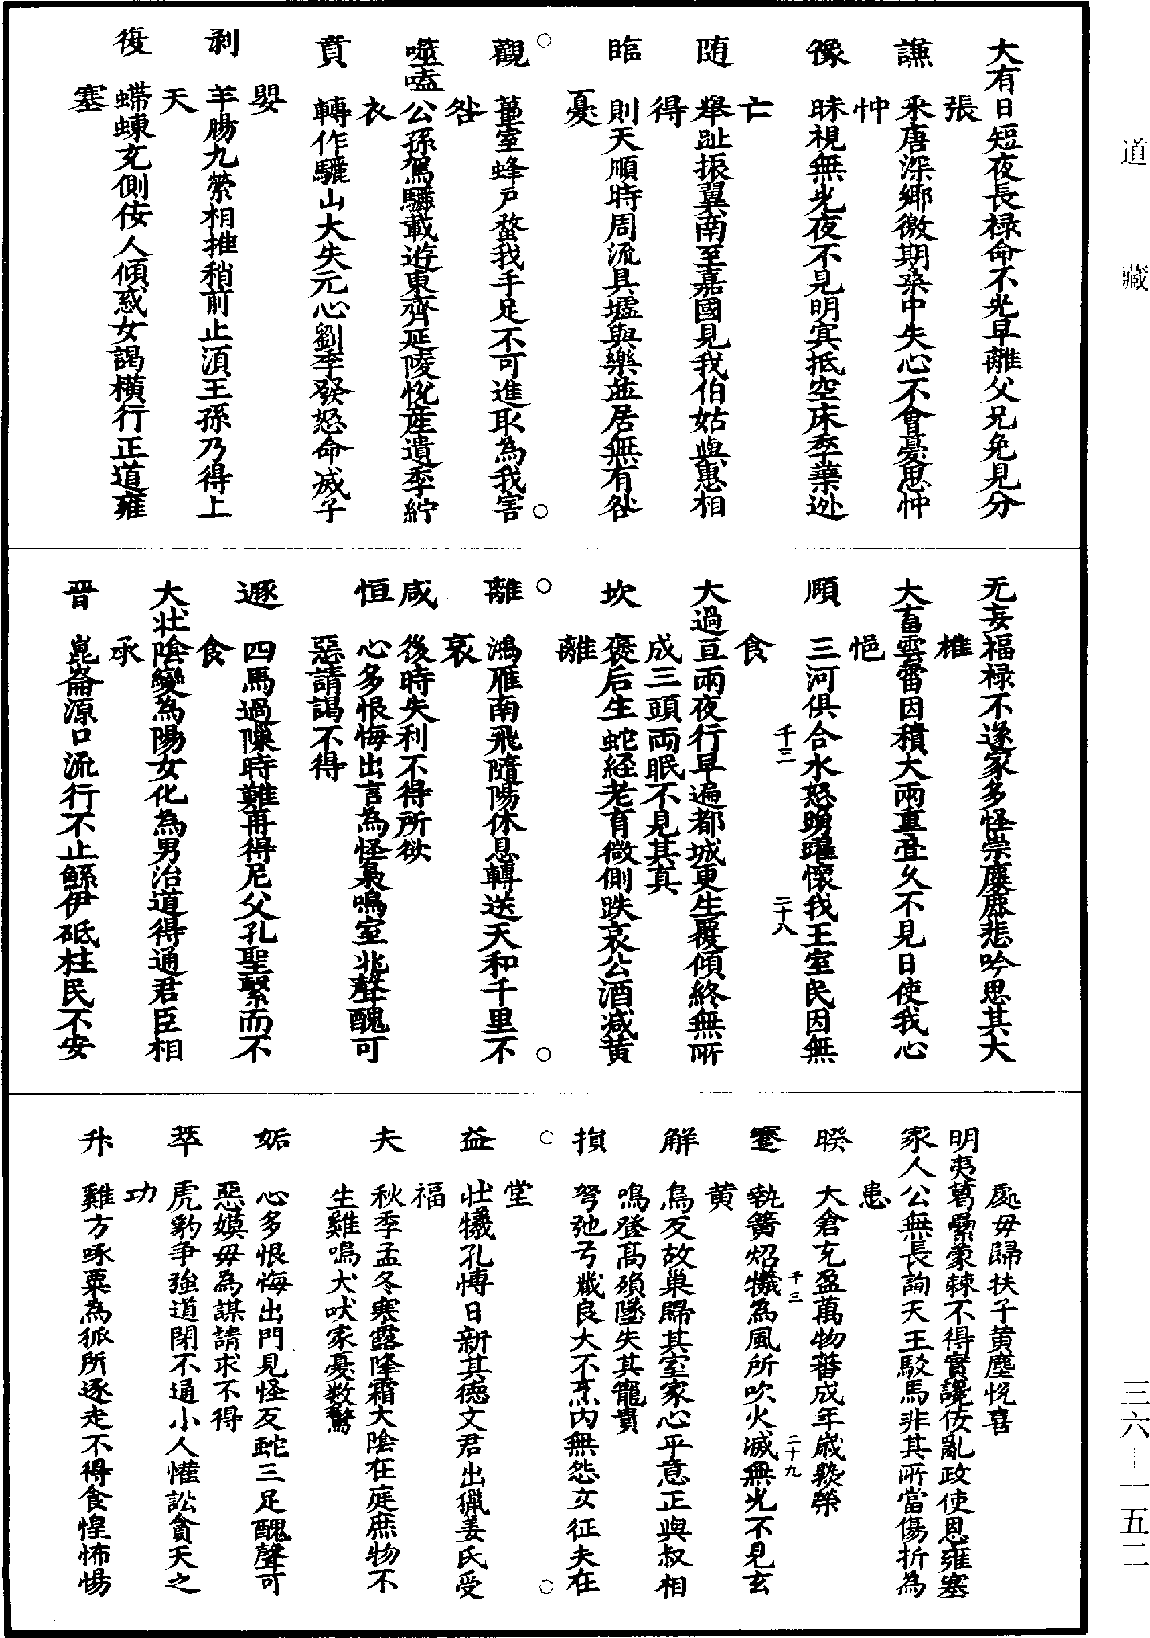 道藏
大有日短夜長祿命不光早離父兄免見分
張
謙 釆唐深鄉徼期桑中失心不會憂思忡
忡
豫 昧視無光夜不見明冥抵空床季葉逊
亡
隨 舉趾振翼南至嘉國見我伯姑與惠相
得
臨 則天順時周流其墟與樂並居無有咎
憂
觀 蓳室蜂戶螫我手足不可進取為我害
咎
噬嗑公孫駕驪載遊東齊延陵恱產遺季紵
衣
賁 轉作驪山大失元心劉季發怒命滅子
嬰
剥 羊腸九縈相推稍前止湏王孫乃得上
天
復 蝃蝀充側佞人傾惑女謁橫行正道雍
塞
无妄福祿不遂家多怪祟麋鹿悲吟思其大
椎
大畜雲雷因積大雨重疊久不見日使我心
悒
頤 三河俱合水怒踴躍懷我王室民因無
食
千三 二十八
大過亘雨夜行早遍都城更生覆傾終無所
成三頭兩眠不見其真
坎 褒后生蛇経老育微側跌哀公酒滅黃
離
離 鴻雁南飛隨陽休息轉送天和千里不
哀
咸 後時失利不得所欲
恒 心多恨悔出言為怪梟鳴室北聲醜可
惡請謁不得
遯 四馬過隙時難再得尼父孔聖繫而不
食
大壯陰變為陽女化為男治道得通君臣相
承
晉 崑崙源口流行不止鯀伊砥柱民不安
處毋歸扶子黃塵恱喜
明夷葛虆蒙棘不得實讒佞亂政使恩雍塞
家人公無長詢天王駮馬非其所當傷折為
患
睽 大倉充盈萬物蕃成年歲豥榮
千三 二十九
蹇 執簧炤犧為風所吹火滅無光不見玄
黃
解 烏反故巢歸其室家心平意正與叔相
鳴登高殞墜失其寵貴
損 弩弛弓藏良犬不烹內無怨女征夫在
堂
益 壮犧孔慱日新其德文君出獵姜氏受
福
夬 秋季孟冬寒露隆霜大陰在庭庶物不
生雞鳴犬吠家憂数驚
姤 心多恨悔出門見怪反蛇三足醜聲可
惡嫫毋為謀請求不得
萃 虎豹争強道閉不通小人懽訟貪天之
功
升 雞方啄粟為狐所逐走不得食惶怖惕
三六—一五二